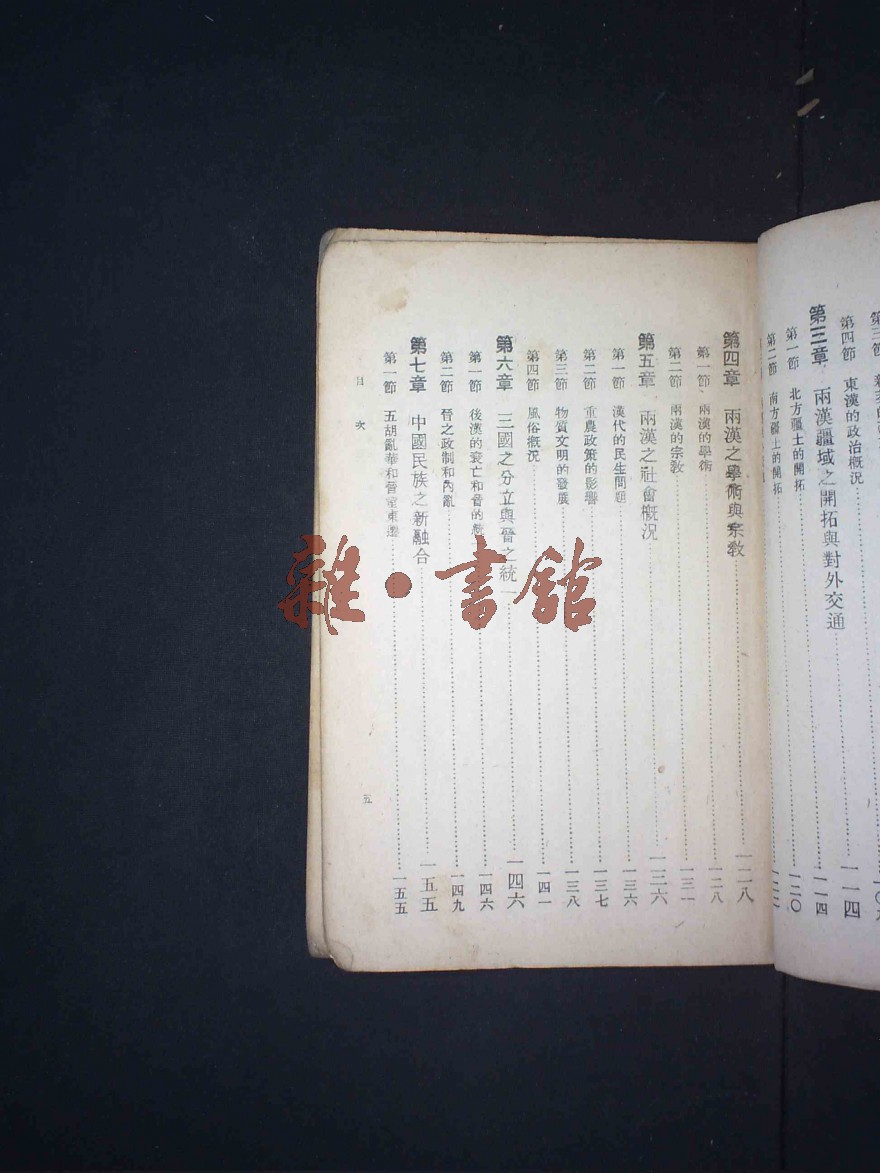 第四節 東漢的政治概況……一一四
第三章 兩漢疆域之開拓與對外交通……一一四
第一節 北方疆土的開拓……一二〇
第二節 南方疆土的開拓
第四章 兩漢之學術與宗教……一二八
第一節 兩漢的學術……一二八
第二節 兩漢的宗教……一三一
第五章 兩漢之社會概況……一三六
第一節 漢代的民生問題……一三六
第二節 重農政策的影響……一三七
第三節 物質文明的發展……一三八
第四節 風俗概況……一四一
第六章 三國之分立與晉之統一……一四六
第一節 後漢的衰亡和晉的……一四六
第二節 晉之政制和內亂……一四九
第七章 中國民族之新融合……一五五
第一節 五胡亂華和晉室東遷……一五五
目次
五
雜·書館